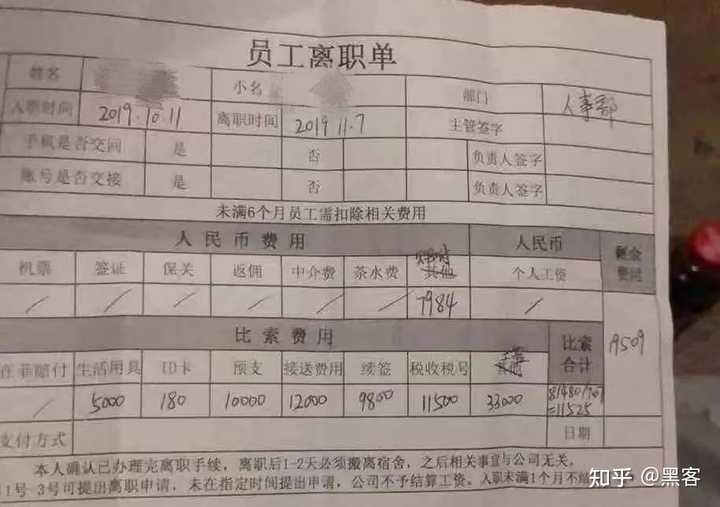 员工离职单
姓名 小名 部门 人事部
入职时间 2019.10.11 离职时间 2019 11.7 主管签字
手机是否交回 是 否 负责人签字
账号是否交接 是 否 负责人签字
未满6个月员工需扣除相关费用
人民币费用 人民币 剩余费用
机票 签证 保关 返佣 中介费 茶水费 个人工资
/ / / / / / 7984 / 19509
比索费用 比索合计
在菲赔付 生活用具 ID卡 预支 接送费用 续签 税收税号
/ 5000 180 10000 12000 9800 11500 33000 81480/7.07=11525
支付方式 日期
本人确认已办理完离职手续,离职后1-2天必须搬离宿舍,之后相关事宜与公司无关,
1号-3号可提出离职申请,未在指定时间提出申请,公司不予结算工资。入职未满1个月不
知乎 @黑客